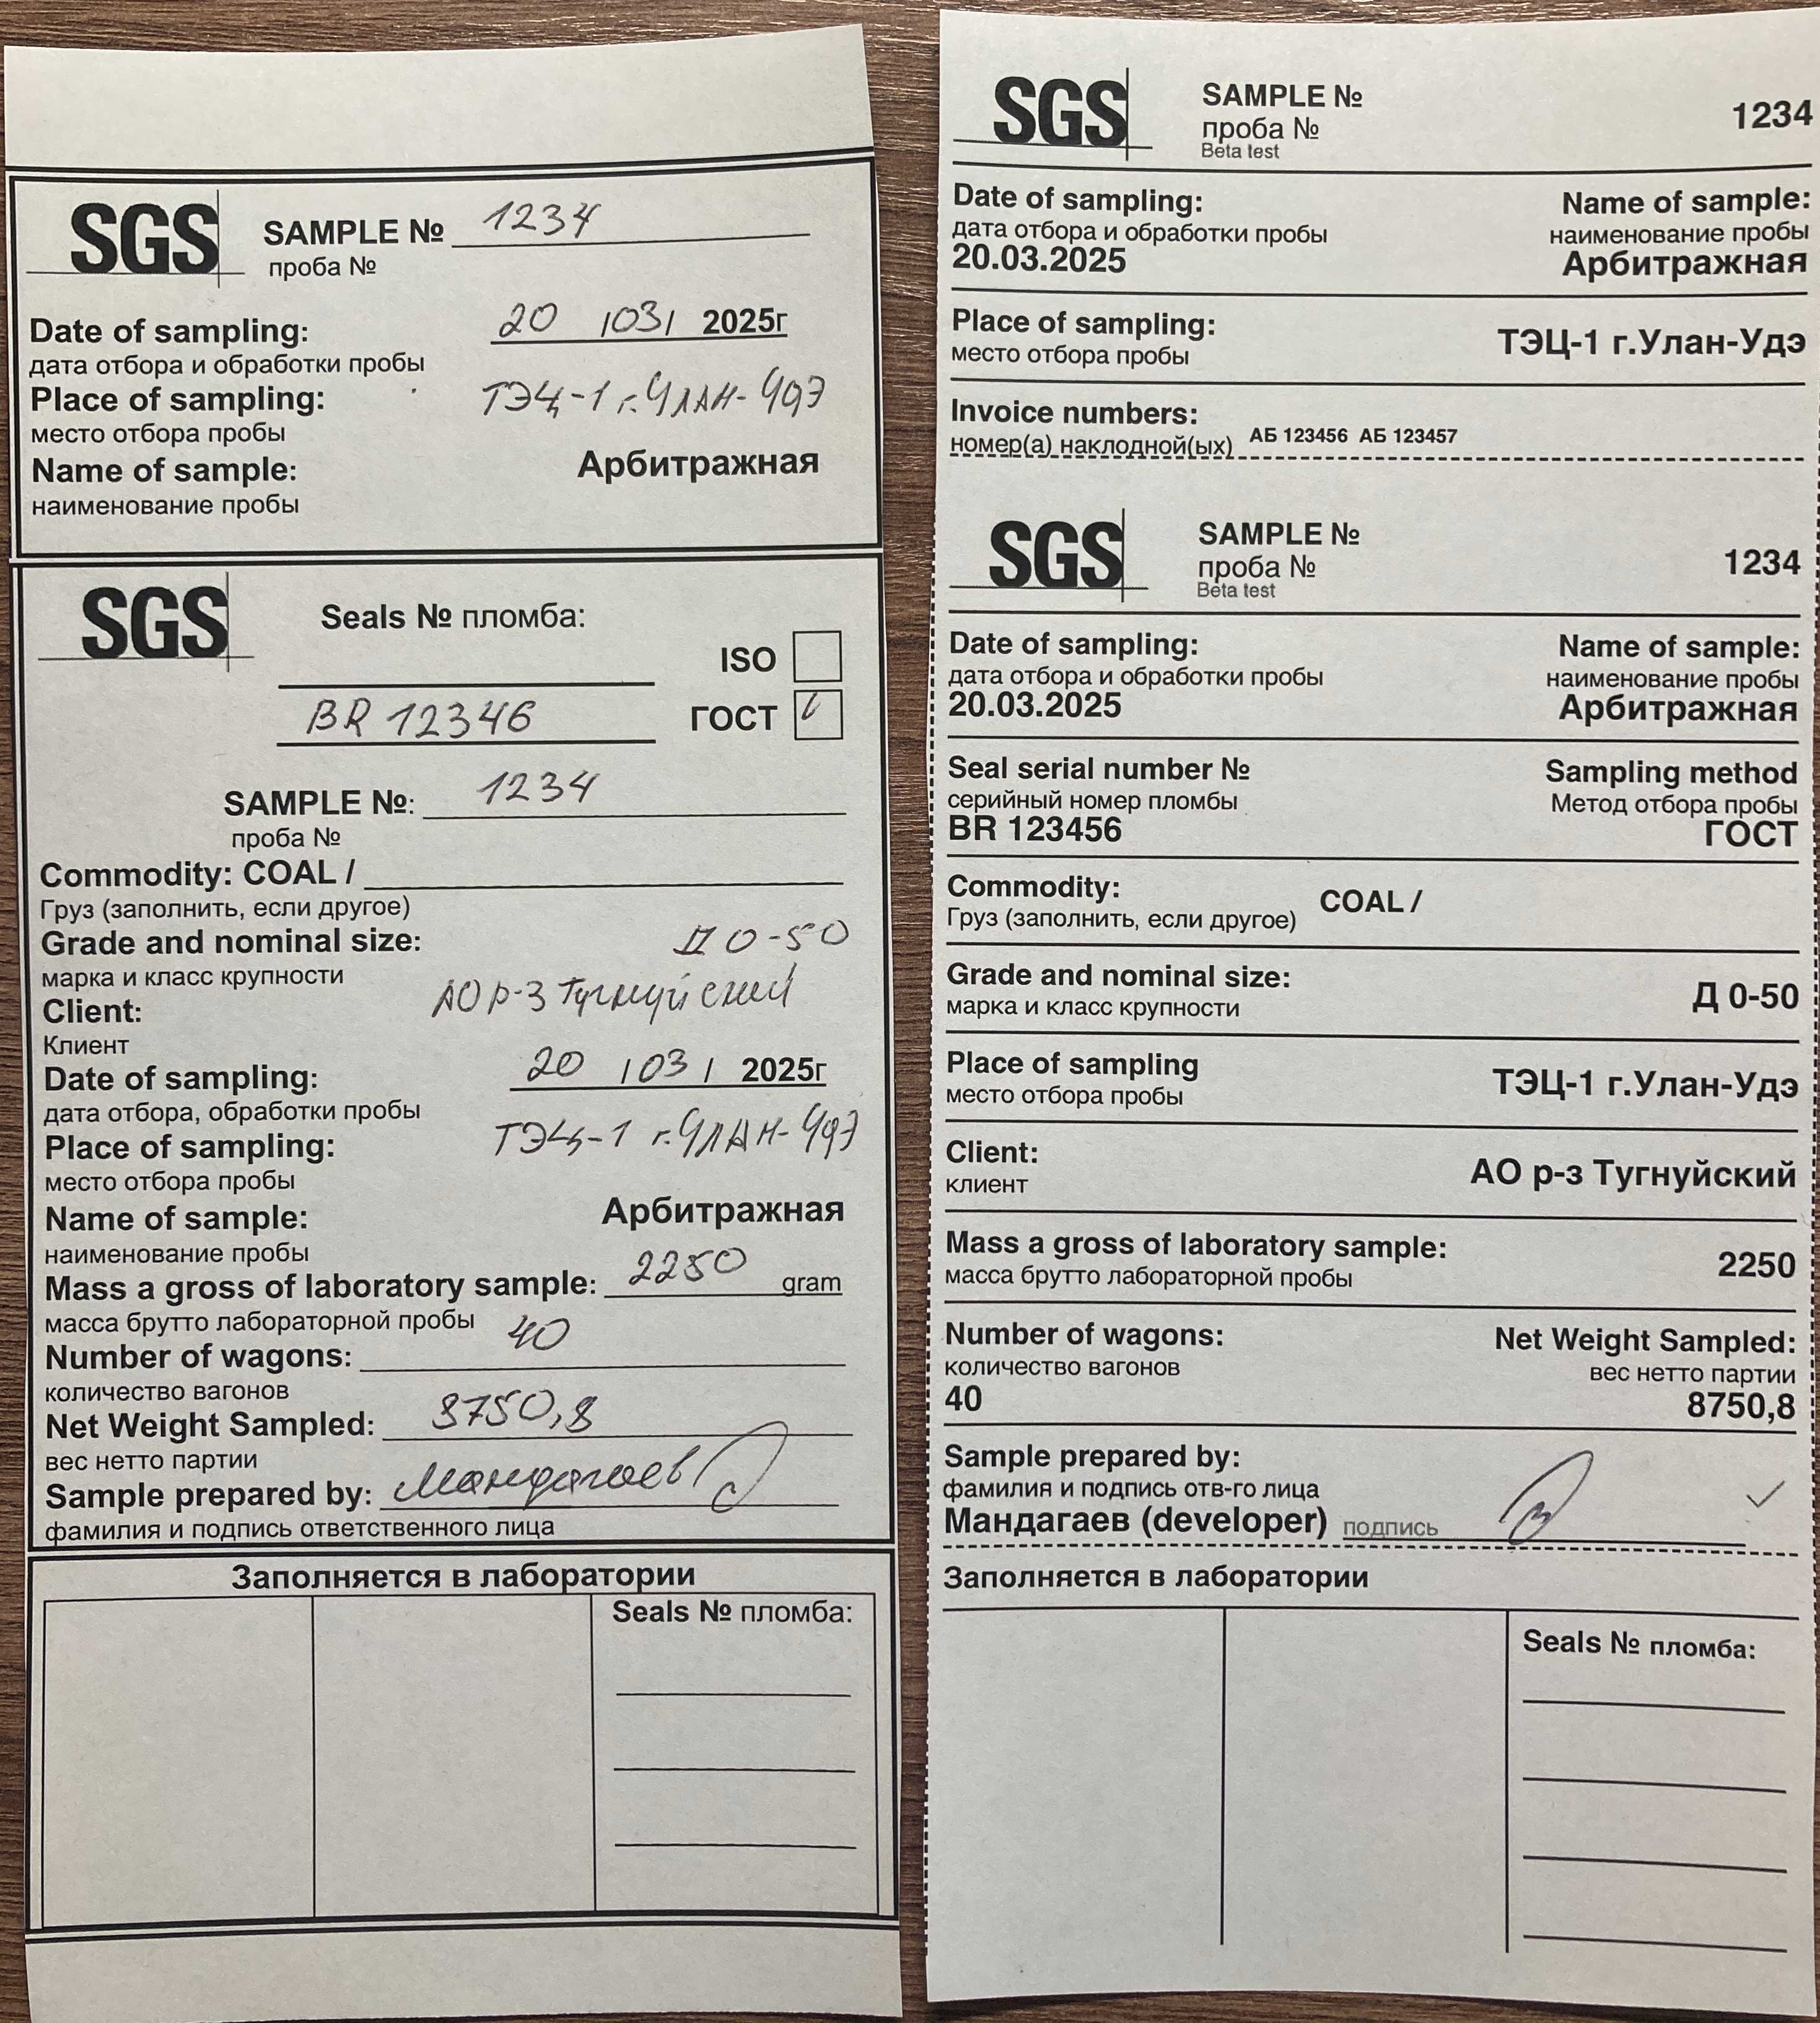 SGS
SAMPLE № 1234
проба №
Date of sampling: 20 /03/ 2025г
дата отбора и обработки пробы
Place of sampling: ТЭЦ-1 г.Улан-Удэ
место отбора пробы
Name of sample: Арбитражная
наименование пробы
SGS
Seals № пломба:
ISO
BR 12346 ГОСТ
SAMPLE №: 1234
проба №
Commodity: COAL /
Груз (заполнить, если другое)
Grade and nominal size: Д 0-50
марка и класс крупности
Client: АО р-з Тугнуйский
Клиент
Date of sampling: 20 /03/ 2025г
дата отбора, обработки пробы
Place of sampling: ТЭЦ-1 г.Улан-Удэ
место отбора пробы
Name of sample: Арбитражная
наименование пробы
Mass a gross of laboratory sample: 2250 gram
масса брутто лабораторной пробы
Number of wagons: 40
количество вагонов
Net Weight Sampled: 8750,8
вес нетто партии
Sample prepared by: Мандагаев
фамилия и подпись ответственного лица
Заполняется в лаборатории
Seals № пломба:
SGS
SAMPLE № 1234
проба №
Beta test
Date of sampling: Name of sample:
дата отбора и обработки пробы наименование пробы
20.03.2025 Арбитражная
Place of sampling: ТЭЦ-1 г.Улан-Удэ
место отбора пробы
Invoice numbers:
номер(а) наклодной(ых) АБ 123456 АБ 123457
SGS
SAMPLE № 1234
проба №
Beta test
Date of sampling: Name of sample:
дата отбора и обработки пробы наименование пробы
20.03.2025 Арбитражная
Seal serial number № Sampling method
серийный номер пломбы Метод отбора пробы
BR 123456 ГОСТ
Commodity: COAL /
Груз (заполнить, если другое)
Grade and nominal size: Д 0-50
марка и класс крупности
Place of sampling ТЭЦ-1 г.Улан-Удэ
место отбора пробы
Client: АО р-з Тугнуйский
клиент
Mass a gross of laboratory sample: 2250
масса брутто лабораторной пробы
Number of wagons: Net Weight Sampled:
количество вагонов вес нетто партии
40 8750,8
Sample prepared by:
фамилия и подпись отв-го лица
Мандагаев (developer) подпись
Заполняется в лаборатории
Seals № пломба: